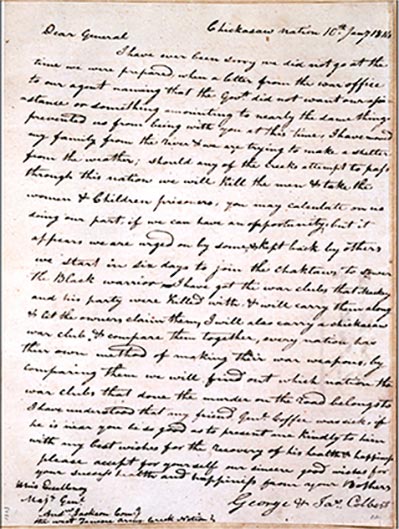 Chickasaw Nation 10th Jany
Dear General
I have ever been sorry we did not go at the
time we were prepared when a letter from the war office
to our agent naming that the Govt. did not want our
stance or something amounting to nearly the same things
prevented us from being with you at this time, I have
my family from the river & we are trying to make a
from the weather; should any of the creeks attempt to pass
through this nation we will kill the men & take the
women & Children prisoners, you may calculate on us
doing our part, if we can have an opportunity, but it
appears we are urged on by some & kept back by others
we start in six days to join the Chaktaws to
the Black warrior I have got the war clubs that
and his party were killed with & will carry them along
& let the owners claim them, I will also carry a chickasaw
war club, & compare them together, every nation has
their own method of making their war weapons, by
comparing them we will find out which nation the
war clubs that done the murder on the road belongs to
I have understood that my friend Genl. Coffee was sick, if
he is near you be so good as to present me kindly to him
with my best wishes for the recovery of his health & happiness
please accept for yourself our sincere good wishes for
your health and happiness from your Brothers
George & Jas. Colbert
Majr. Genl.
Andw. Jackson Comg.
the west Army Creek Nation